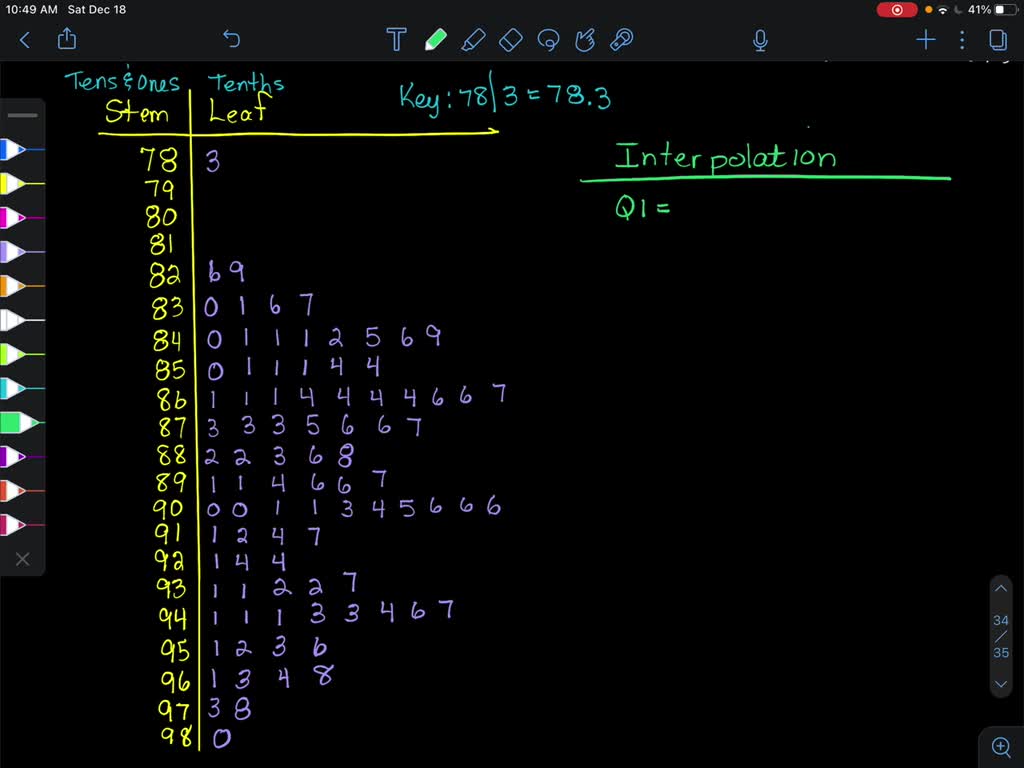 10:49 AM Sat Dec 18
41%
Tens & Ones Tenths
Key: 78|3 = 78.3
Stem Leaf
Interpolation
Q1 =
78 3
79
80
81
82 6 9
83 0 1 6 7
84 0 1 1 1 2 5 6 9
85 0 1 1 1 4 4
86 1 1 1 4 4 4 4 6 6 7
87 3 3 3 5 6 6 7
88 2 2 3 6 8
89 1 1 4 6 6 7
90 0 0 1 1 3 4 5 6 6 6
91 1 2 4 7
92 1 4 4
93 1 1 2 2 7
94 1 1 1 3 3 4 6 7
95 1 2 3 6
96 1 3 4 8
97 3 8
98 0
34
/
35